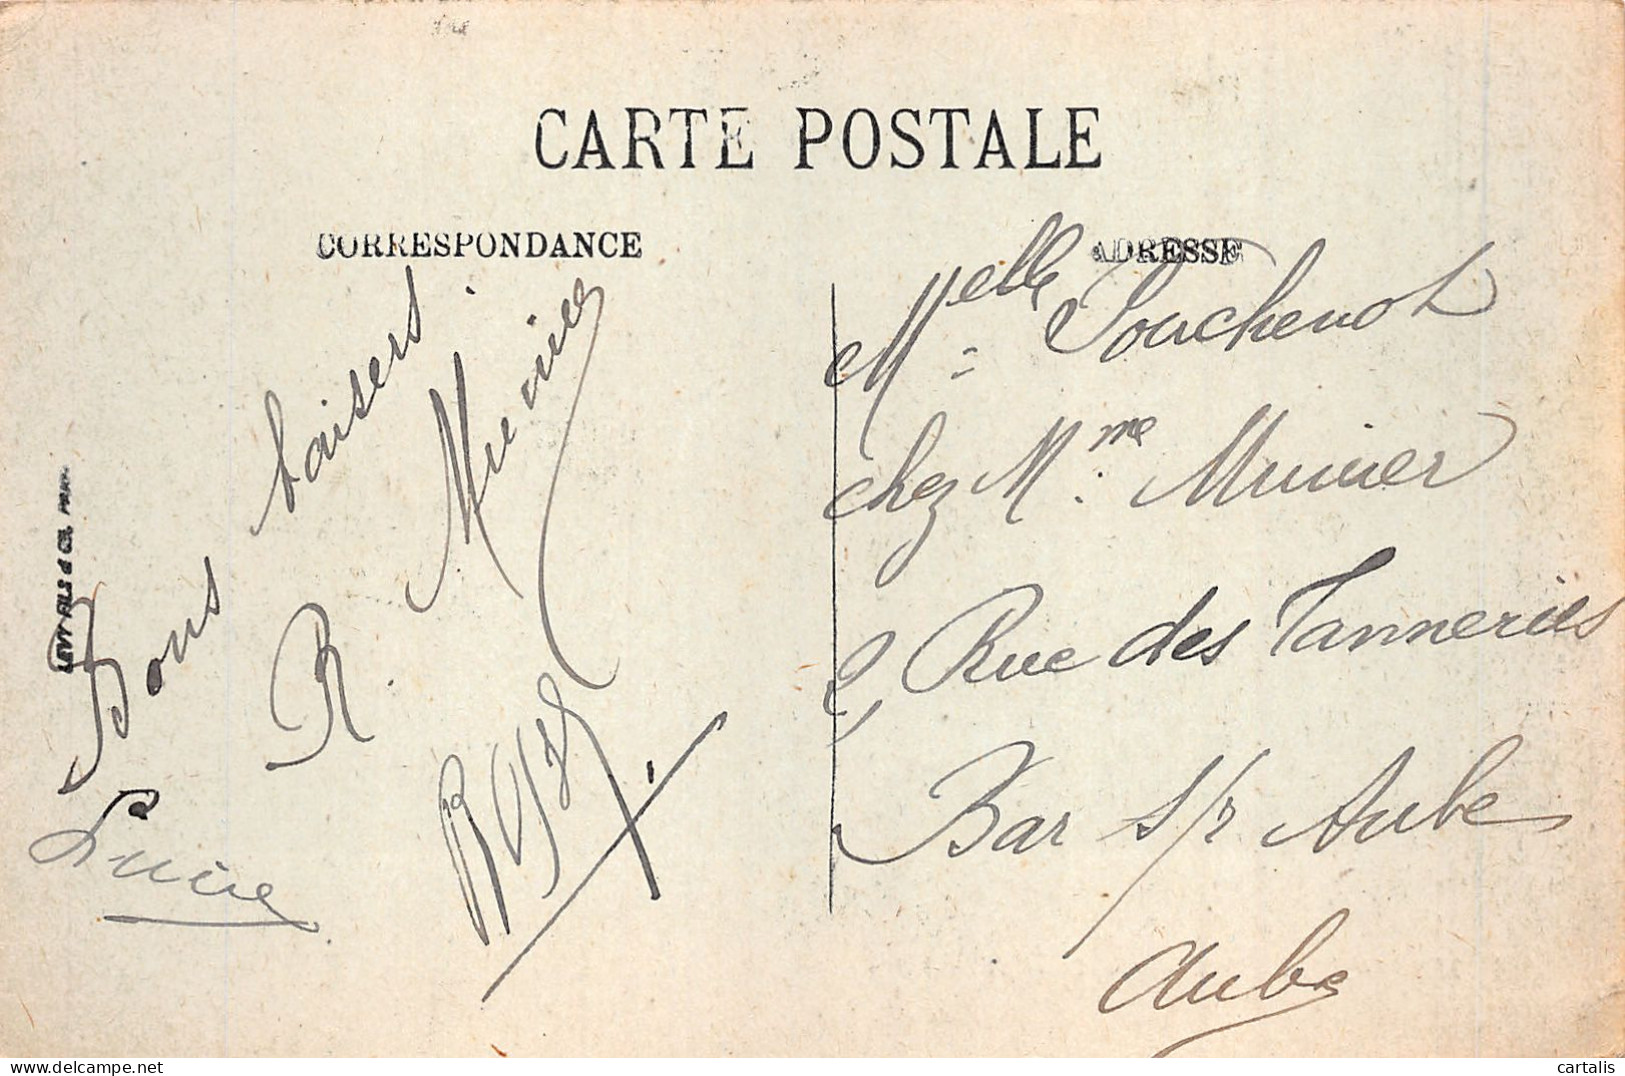 CARTE POSTALE
CORRESPONDANCE
ADRESSE
Bons baisers
R. Munier
LEVY FILS & Cie. PARIS
Melle Souchenot
chez Mme Munier
Rue des Tanneries
Bar s/r Aube
Aube
cartalis